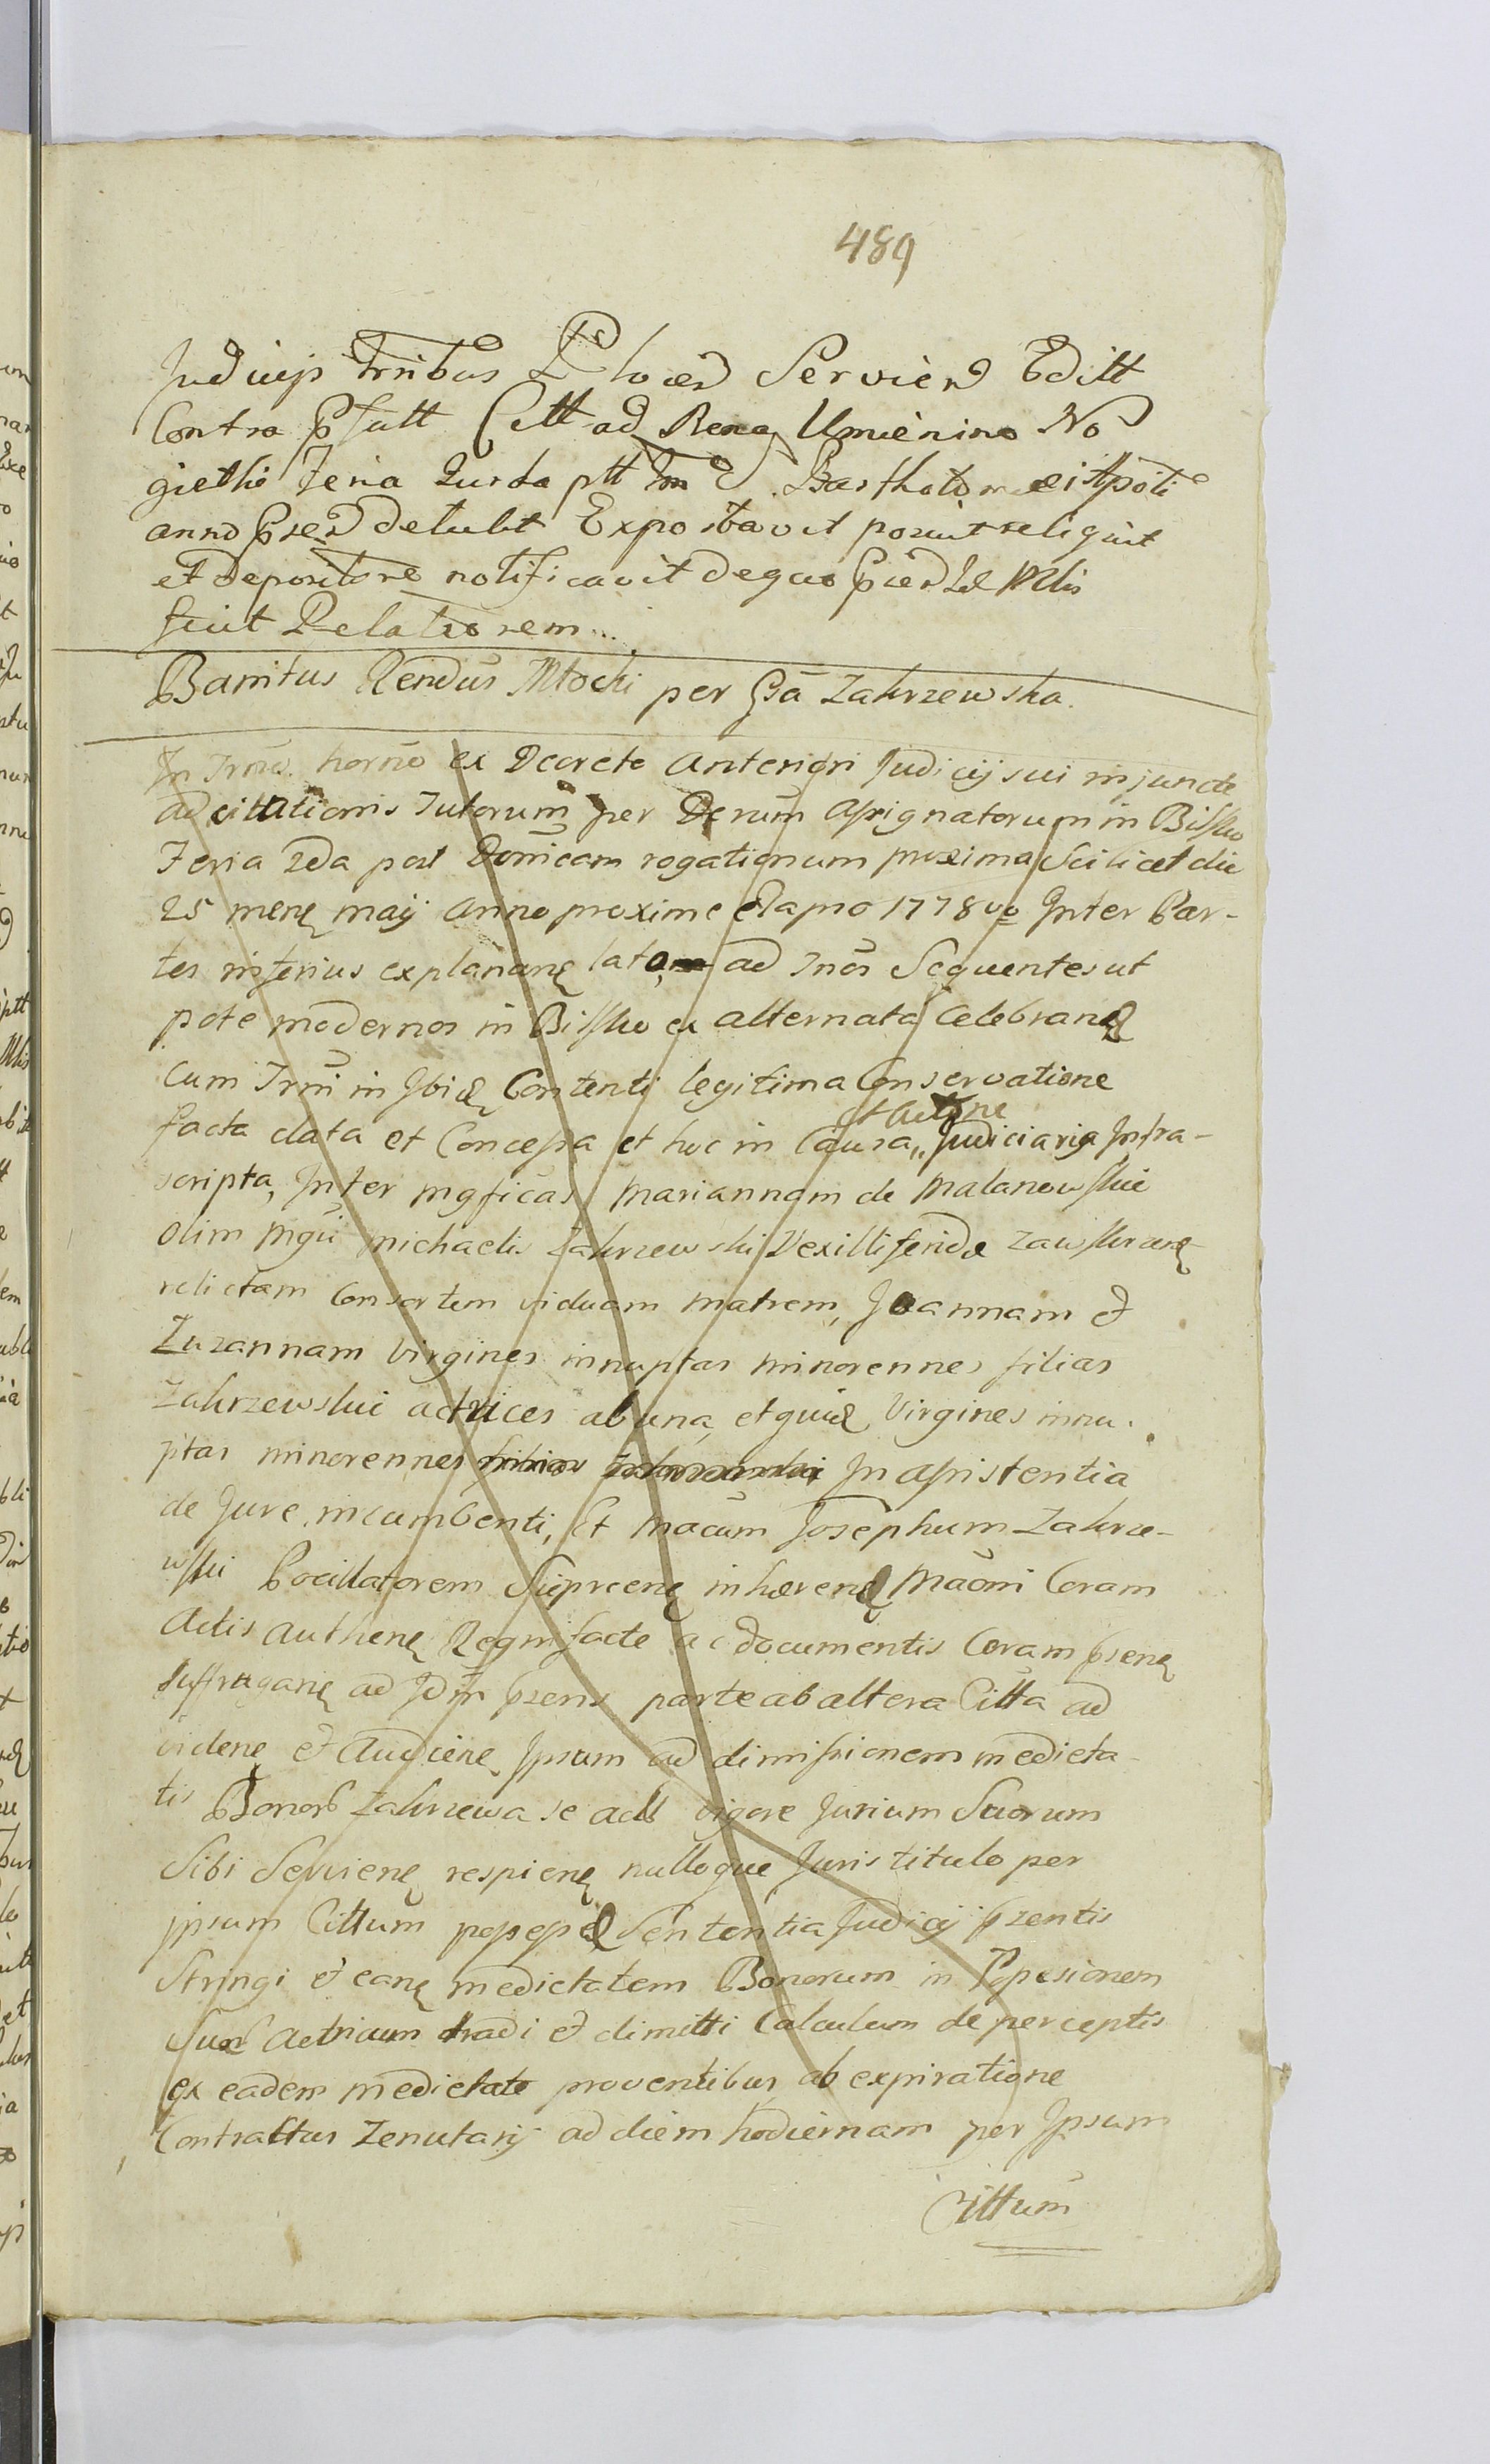 489
Judicijs Trnibus Servien Editt
Contra Citt ad Bona Umienino No
giethi Feria 4urta ptt Bartholomaei Apoli
anno detulit Exportavit posuit reliquit
et depositore notificavit de quo
fecit Relationem...
Banitus Rendus Młocki per Zakrzewska.
In Trmo. horno ex Decreto Anteriori Judicij sui injuncte
ad cittationis Tutorum per Dnum assignatorum in Bilsko
Feria 2da post Domicam rogationum proxima Scilicet die
25 mens maij Anno proxime Elapso 1778vo Inter Par-
tes inferius explanans lato ad Tnos Sequentes ut
pote modernos in Bilsko ex alternata Celebrand
Cum Trni in Ibid Contenti legitima Conservatione
et actione
facta data et Concessa et hoc in Causa,, Judiciaria Infra-
scripta, Inter mgficas Mariannam de Malanowskie
olim mgci Michaelis Zakrzewski Vexilliferidae Zawskrzen
relictam Consortem viduam matrem, Joannam et
Zuzannam Virgines innuptas minorennes filias
Zakrzewskie actrices ab una, et quid Virgines innu-
ptas minorennes In assistentia
de Jure incumbenti, Et macum Josephum Zakrze-
wski Pocillatorem inhaeren Maoni Coram
Actis Authen Regni facte ac documentis Coram psen
suffragan ad pzens parte ab altera Citta ad
viden et Audien Ipsum ad dimissionem medieta-
tis Bonor Zakrzewa se ad vigore Jurium Suorum
Sibi Servien respien nulloque Juris titulo per
ipsum Cittum possess Sententia Judicij pzentis
Stringi et ean medietatem Bonorum in Possesionem
Suar Actricum tradi et dimitti Calculum de perceptis
ex eadem medietate proventibus ab expiratione
Contractus Tenutarij ad diem hodiernam per Ipsum
Cittum